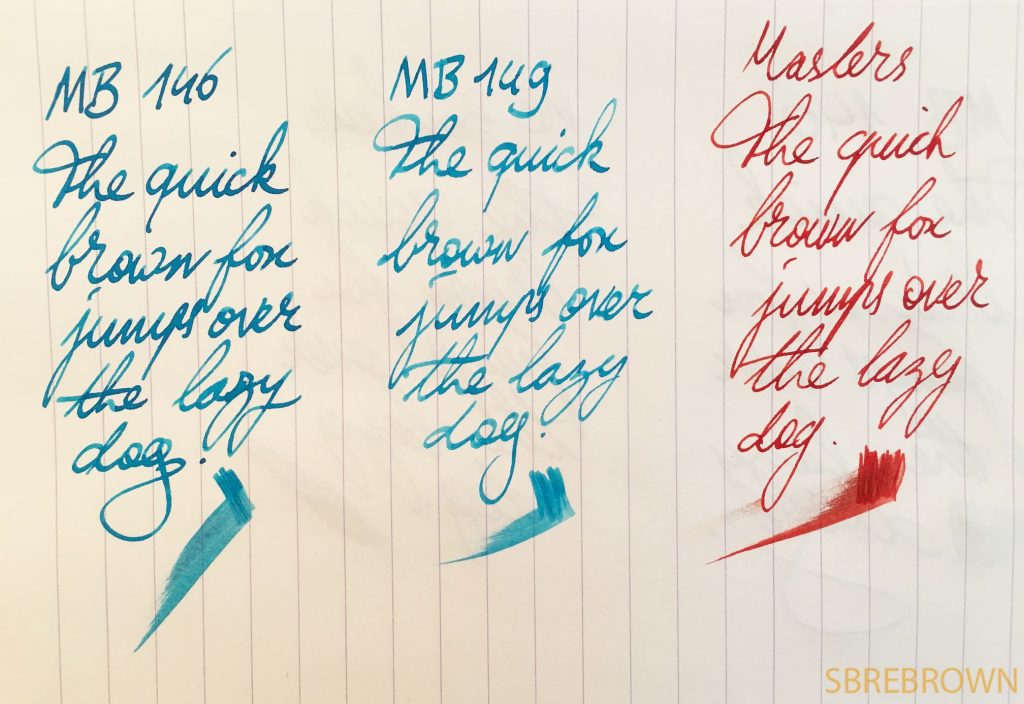 MB 146
The quick
brown fox
jumps over
the lazy
dog!
MB 149
The quick
brown fox
jumps over
the lazy
dog!
Masters
The quick
brown fox
jumps over
the lazy
dog.
SBREBROWN